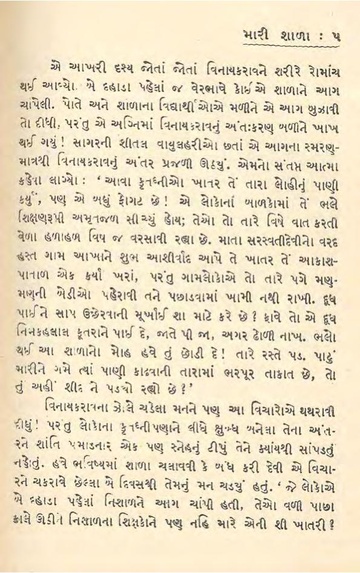 મારી શાળા : ૫
એ આખરી દશ્ય જોતાં જોતાં વિનાયકરાવને શરીરે રોમાંચ
થઈ આવ્યો. બે દહાડા પહેલાં જ વેરભાવે કોઈએ શાળાને આગ
ચાંપેલી. પોતે અને શાળાના વિદ્યાર્થીઓએ મળીને એ આગ બુઝાવી
તો દીધી, પરંતુ એ અગ્નિમાં વિનાયકરાવનું અંતઃકરણ બળીને ખાખ
થઈ ગયું! સાગરની શીતલ વાયુલહરીઓ છતાં એ આગના સ્મરણ-
માત્રથી વિનાયકરાવનું અંતર પ્રજળી ઊઠયું. એમનો સંતપ્ત આત્મા
કહેવા લાગ્યો: 'આવા કૃતઘ્નીઓ ખાતર તેં તારા લોહીનું પાણી
કર્યું, પણ એ બધું ફોગટ છે! એ લોકોનાં બાળકોમાં તેં ભલે
શિક્ષણરૂપી અમૃતજળ સીંચ્યું હોય; તેઓ તો તારે વિષે વાત કરતી
વેળા હળાહળ વિષ જ વરસાવી રહ્યા છે. માતા સરસ્વતીદેવીનો વરદ
હસ્ત ગામ આખાને શુભ આશીર્વાદ આપે તે ખાતર તેં આકાશ-
પાતાળ એક કર્યાં ખરાં, પરંતુ ગામલોકોએ તો તારે પગે મણ-
મણની બેડીઓ પહેરાવી તને પછાડવામાં ખામી નથી રાખી. દૂધ
પાઈને સાપ ઉછેરવાની મૂર્ખાઈ શા માટે કરે છે? કાવે તો એ દૂધ
નિમકહલાલ કૂતરાને પાઈ દે, જાતે પી જા, અગર ઢોળી નાખ. ભલો
થઈ આ શાળાનો મોહ હવે તું છોડી દે! તારે રસ્તે પડ. પાટું
મારીને ગમે ત્યાં પાણી કાઢવાની તારામાં ભરપૂર તાકાત છે, તો
તું અહીં શીદ ને પડયો રહ્યો છે?'
વિનાયકરાવના ઝોલે ચડેલા મનને પણ આ વિચારોએ થથરાવી
દીધું! પરંતુ લોકોના કૃતઘ્નીપણાને લીધે ક્ષુબ્ધ બનેલા તેના અંત-
રને શાંતિ પમાડનાર એક પણ સ્નેહનું ટીપું તેને કયાંયથી સાંપડતું
નહોતું. હવે ભવિષ્યમાં શાળા ચલાવવી કે બંધ કરી દેવી એ વિચા-
રને ચકરાવે છેલ્લા બે દિવસથી તેમનું મન ચડયું હતું. 'જે લોકોએ
બે દહાડા પહેલાં નિશાળને આગ ચાંપી હતી, તેઓ વળી પાછા
કાલે ઊઠીને નિશાળના શિક્ષકોને પણ નહિ મારે એની શી ખાતરી?